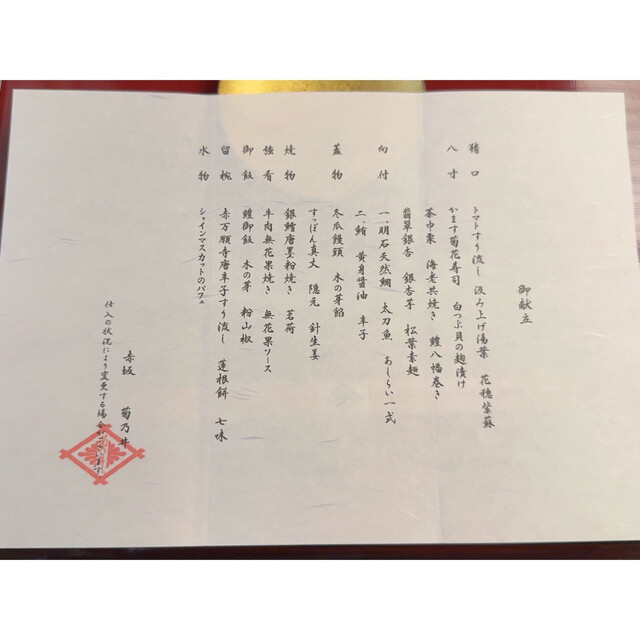 御献立
猪口 トマトすり流し 汲み上げ湯葉 花穂紫蘇
八寸 かます菊花寿司 白つぶ貝の麹漬け
茶巾栗 海老共焼き 鱧八幡巻き
翡翠銀杏 銀杏芋 松葉素麺
向付 一、明石天然鯛 太刀魚 あしらい一式
二、鮪 黄身醤油 辛子
蓋物 冬瓜饅頭 木の芽餡
すっぽん真丈 隠元 針生姜
焼物 銀鱈唐墨粉焼き 茗荷
強肴 牛肉無花果焼き 無花果ソース
御飯 鱧御飯 木の芽 粉山椒
留椀 赤万願寺唐辛子すり流し 蓮根餅 七味
水物 シャインマスカットのパフェ
赤坂 菊乃井
仕入の状況により変更する場合がございます